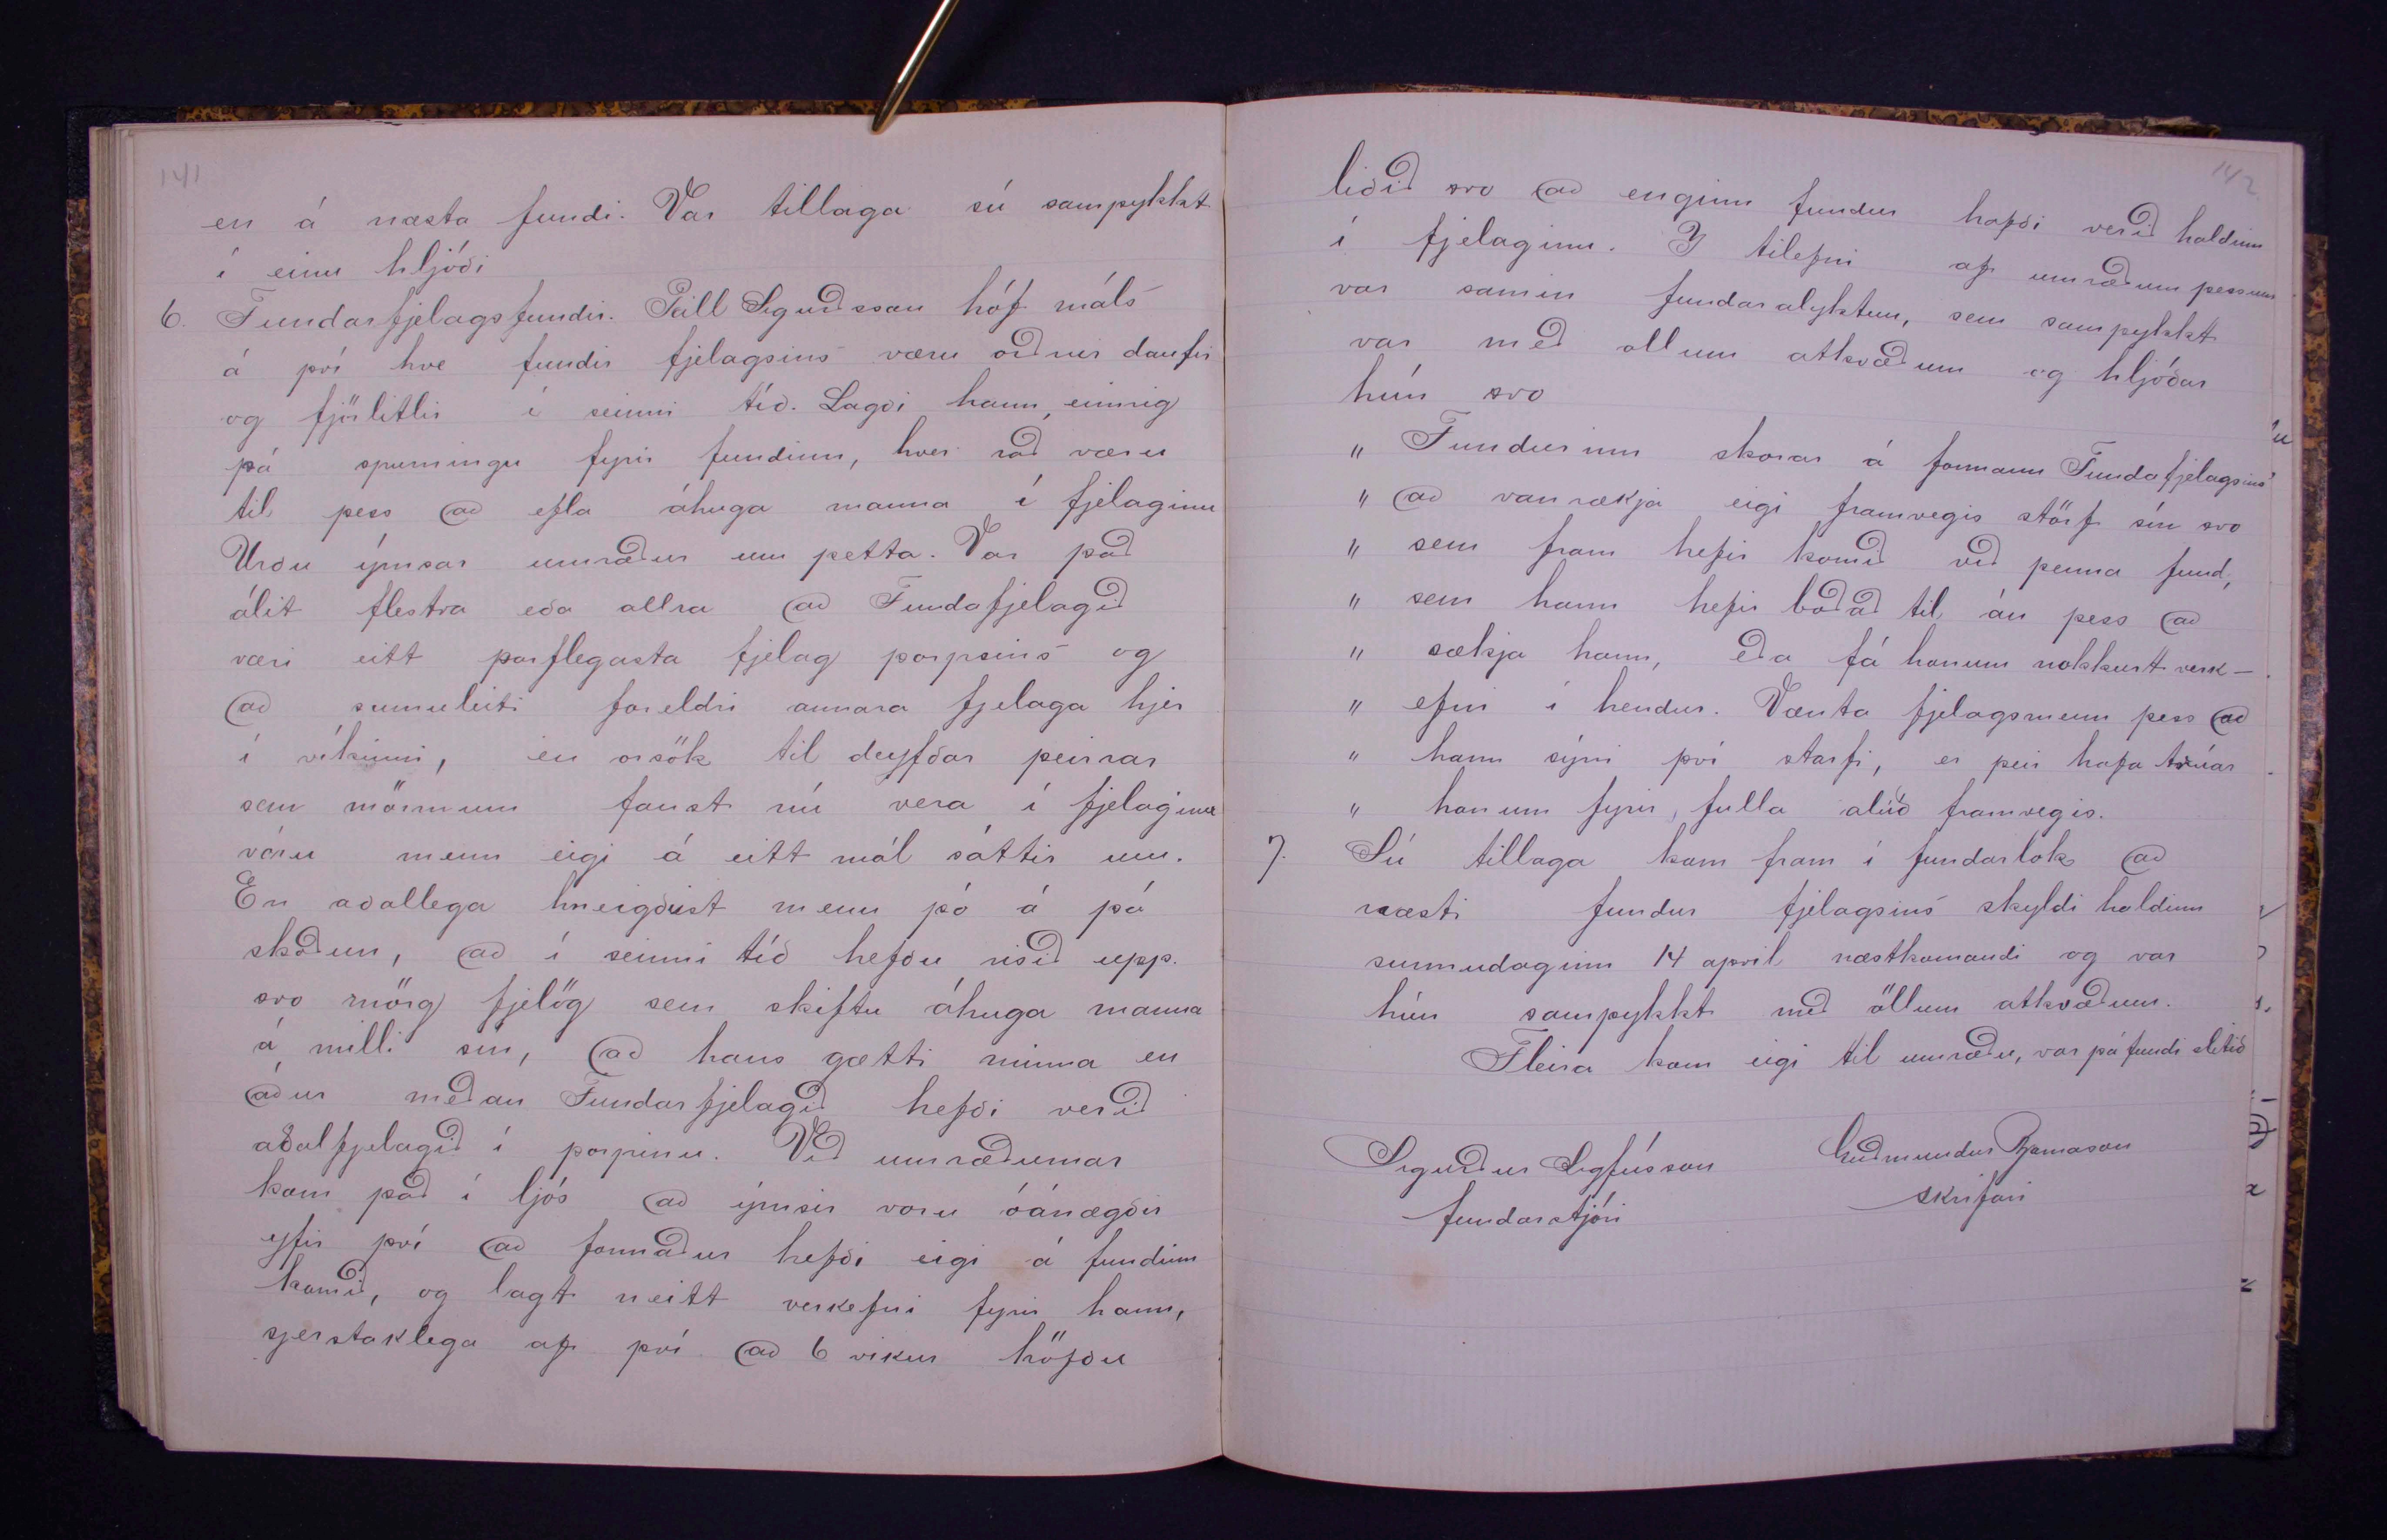 141
en á næsta fundi. Var tillaga sú samþykkt
í einu hljóði
6. Fundarfjelagsfundir. Páll Sigurðsson hóf máls
á því hve fundir fjelagsins væru orðnir daufir
og fjörlitlir í seinni tíð. Lagði hann einnig
þá spurningu fyrir fundinn, hver ráð væru
til þess að efla áhuga manna í fjelaginu
Urðu ýmsar umræður um þetta. Var það
álit flestra eða allra að Fundafjelagið
væri eitt þarflegasta fjelag þorpsins og
að sumuleiti foreldri annara fjelaga hjer
í víkinni, en orsök til deyfðar þeirrar
sem mönnum fanst nú vera í fjelaginu
vóru menn eigi á eitt mál sáttir um.
En aðallega hneigðust menn þó á þá
skoðun, að í seinni tíð hefðu risið upp
svo mörg fjelög sem skiftu áhuga manna
á milli sín, að hans gætti minna en
áður meðan Fundarfjelagið hefði verið
aðalfjelagið í þorpinu. Við umræðurnar
kom það í ljós að ýmsir voru óánægðir
yfir því að formaður hefði eigi á fundinn
komið, og lagt neitt verkefni fyrir hann,
sjerstaklega af því að 6 vikur höfðu
142
liðið svo að enginn fundur hafði verið haldinn
í fjelaginu. Í tilefni af umræðum þessum
var samin fundarályktun, sem samþykkt
var með ollum atkvæðum og hljóðar
hún svo
" Fundurinn skorar á formann Fundafjelagsins
" að vanrækja eigi framvegis störf sín svo
" sem fram hefir komið við þenna fund,
" sem hann hefir boðað til, án þess að
" sækja hann, eða fá honum nokkurt verk-
" efni í hendur. Vænta fjelagsmenn þess að
" hann sýni því starfi, er þeir hafa trúað
" honum fyrir, fulla alúð framvegis.
7. Sú tillaga kom fram í fundarlok að
næsti fundur fjelagsins skyldi haldinn
sunnudaginn 14 apríl næstkomandi og var
hún samþykkt með öllum atkvæðum.
Fleira kom eigi til umræðu, var þá fundi slitið
Sigurður Sigfússon Guðmundur Bjarnason
fundarstjóri skrifari